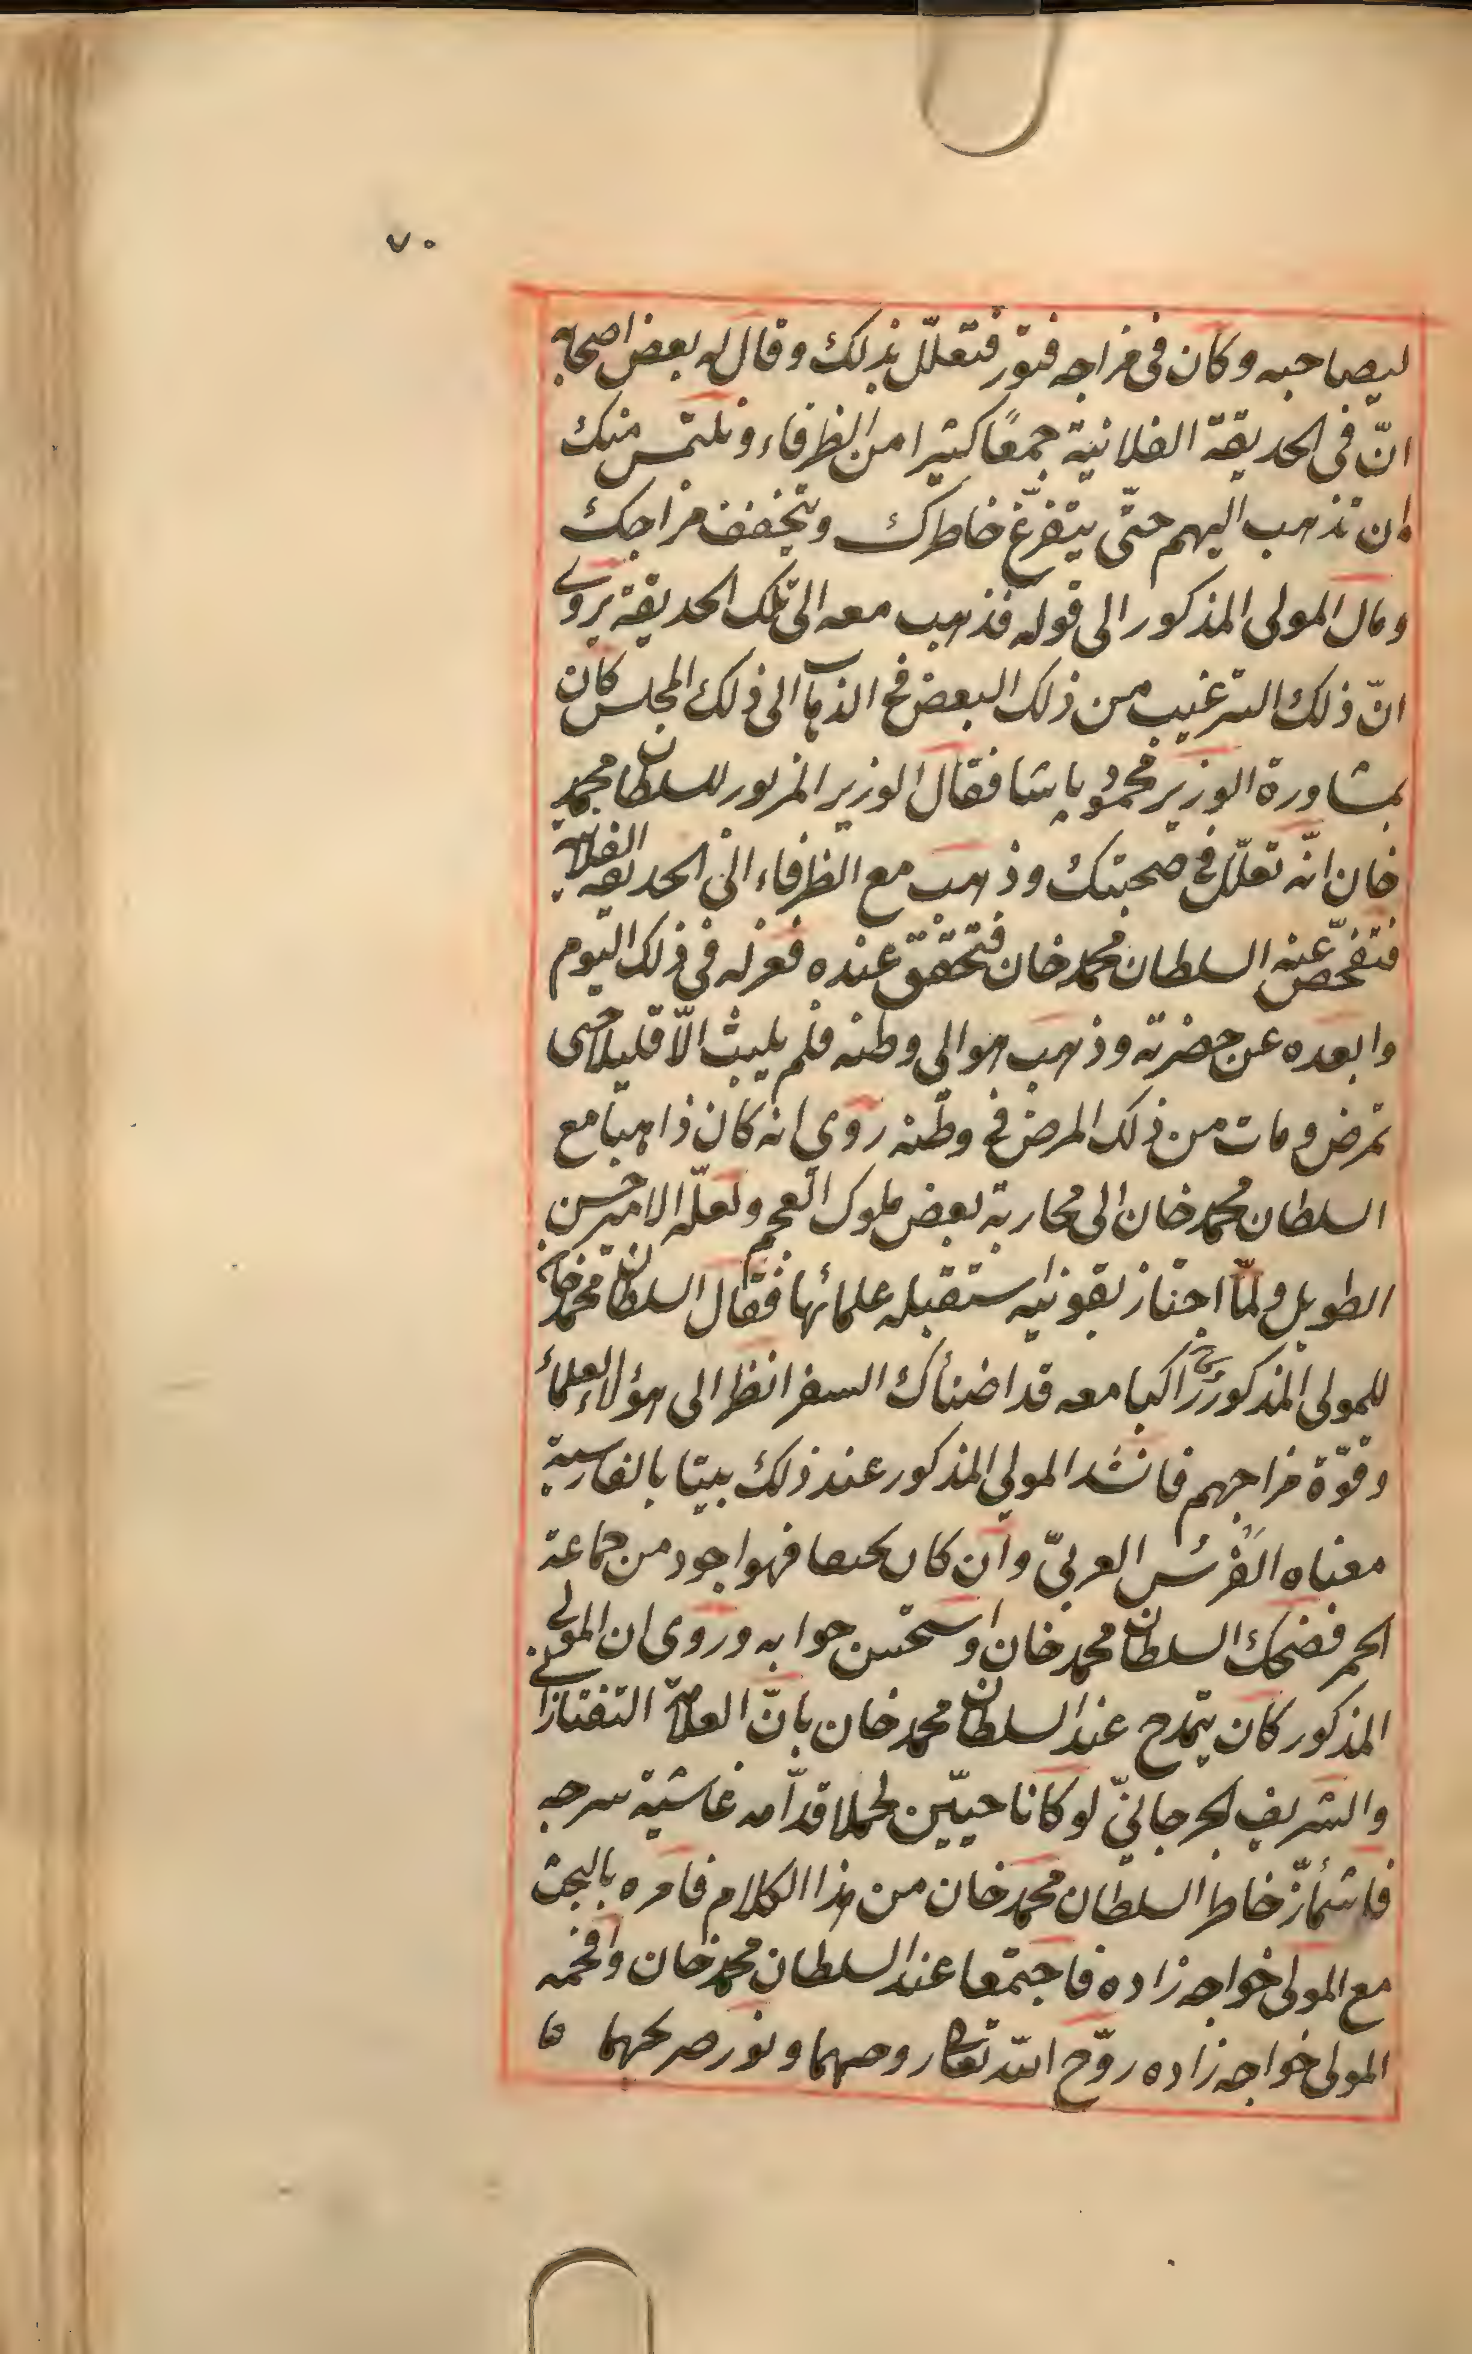 ٧٠
ليصاحبه وكان فى مزاجه فتور فتعلّل بذلك وقال له بعض اصحابه
انّ فى الحديقة الفلانية جمعًا كثيرا من الظرفاء ونلتمس منك
ان تذهب اليهم حتّى يتفرّغ خاطرك ويتخفف مزاجك
ومال المولى المذكور الى قوله فذهب معه الى تلك الحديقة يروى
انّ ذلك الترغيب من ذلك البعض فى الذهاب الى ذلك المجلس كان
بمشاورة الوزير محمود پاشا فقال الوزير المزبور للسلطان محمد
خان انّه تعلّل فى صحبتك وذهب مع الظرفاء الى الحديقة الفلانية
فتفحّص عنه السلطان محمد خان فتحقق عنده فعزله فى ذلك اليوم
وابعده عن حضرته وذهب هو الى وطنه فلم يلبث الّا قليلا حتى
تمرض ومات من ذلك المرض فى وطنه روى انه كان ذاهبا مع
السلطان محمد خان الى محاربة بعض ملوك العجم ولعلّه الامير حسن
الطويل ولمّا اجتاز بقونيه استقبله علمائها فقال السلطان محمد خان
للمولى المذكور راكبا معه قد اضنأك السفر انظر الى هؤلاء العلماء
وقوّة مزاجهم فانشد المولى المذكور عند ذلك بيتا بالفارسية
معناه الفَرَسُ العربىّ وان كان نحيفا فهو اجود من جماعة
الحمر فضحك السلطان محمد خان واستحسن جوابه وروى ان المولى
المذكور كان يتمدح عند السلطان محمد خان بانّ العلامة التفتازانى
والشريف الجرجانىّ لو كانا حيّين لحملا قدّامه غاشية سرجه
فاشمأزّ خاطر السلطان محمد خان من هذا الكلام فامره بالبحث
مع المولى خواجه زاده فاجتمعا عند السلطان محمد خان وافحمه
المولى خواجه زاده روّح اللّه تعالى روحهما ونور ضريحهما